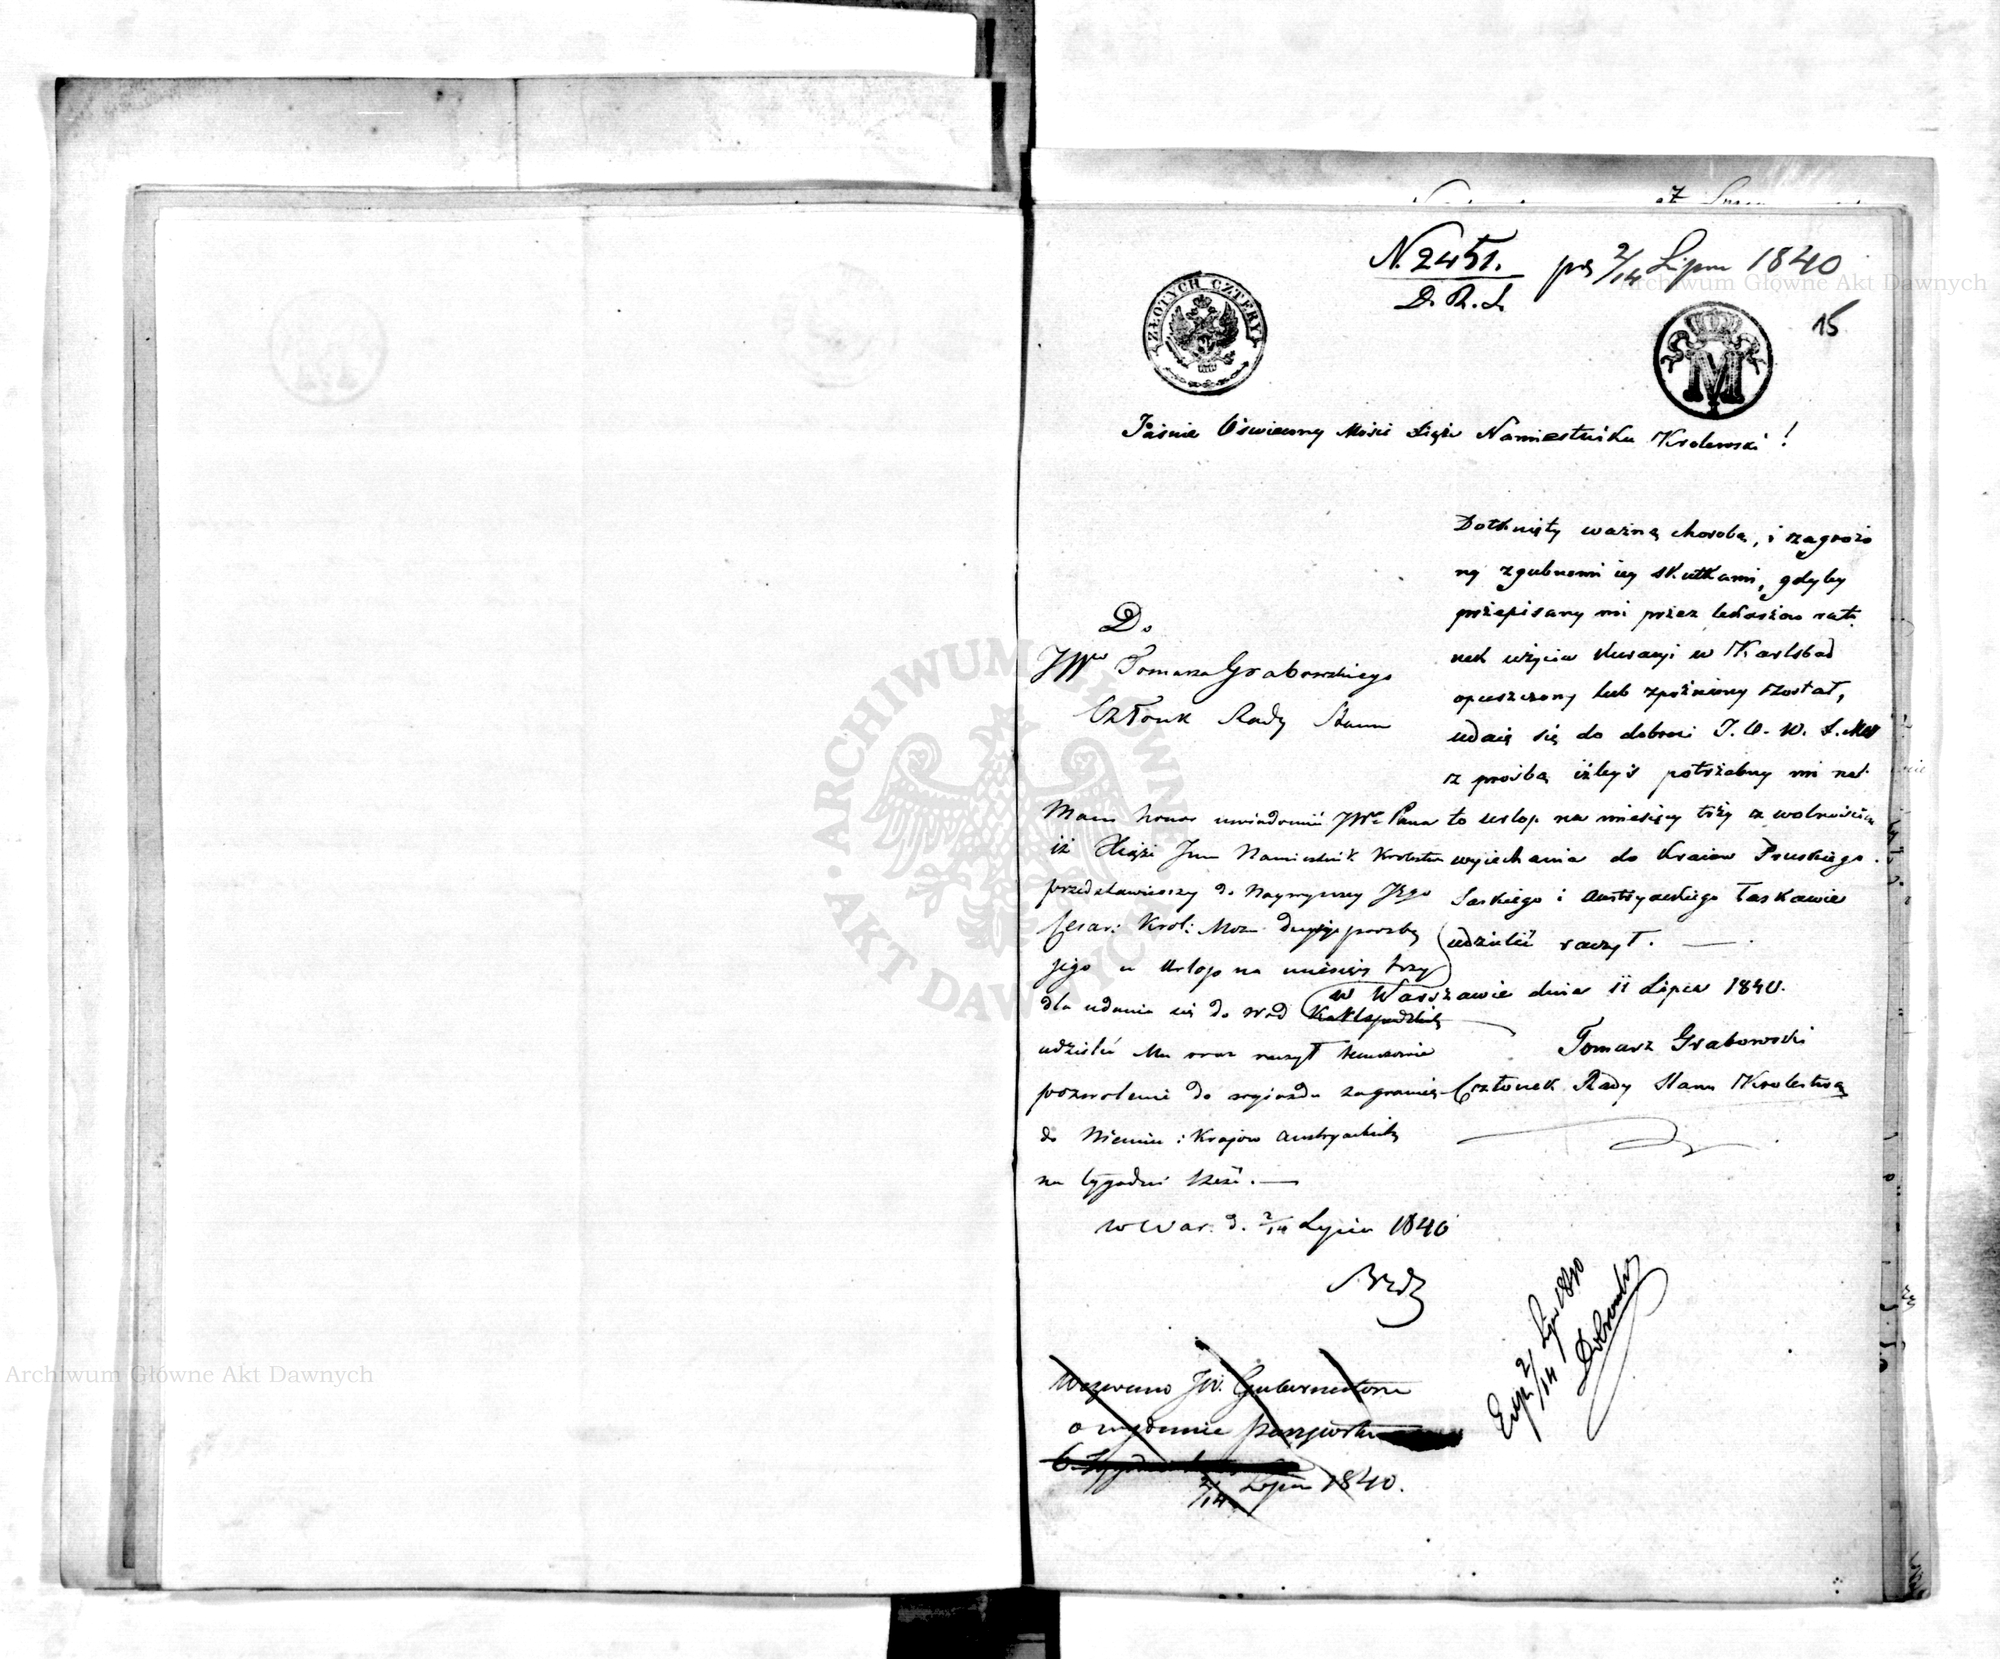 N. 2451.
D. R. S.
pr 2/14 Lipca 1840
15
ZŁOTYCH CZTERY
M
Jaśnie Oświecony Mości Xięże Namiestniku Krolewski!
Dotknięty ważną chorobą, i zagrożo
ny zgubnemi iey skutkami, gdyby
przepisany mi przez lekarzow ratu
nek użycia kuracyi w Karlsbad
opuszczony lub zpóźniony został,
udaię się do dobroci J. O. W. X. Mci
z prośbą iżbyś potrzebny mi na
to urlop na miesięcy trzy z wolnością
wyiechania do Kraiow Pruskiego
Saskiego i Austryackiego łaskawie
udzielić raczył.
w Warszawie dnia 11 Lipca 1840.
Tomasz Grabowski
Członek Rady Stanu Krolestwa
Do
JWo Tomasza Grabowskiego
Członk Rady Stanu
Mam honor uwiadomić JWo Pana
iż Xiąże Jmc Namiestnik Krolestwa
przedstawiwszy do Naywyższey Jego
Cesar: Krol: Mci decyzyi prozbę
jego o urlop na miesięcy trzy
dla udania się do wod Karlsbadzkich
udzielić Mu oraz raczył
pozwolenie do wyiazdu zagranicę
do Niemiec i Krajow Austryackich
na tygodni sześć.
w War. d. 2/14 Lipca 1840
Wezwano JW. Gubernatora
o wydanie paszportu
2/14 Lipca 1840.
Exp. 2/14 Lipca 1840
ARCHIWUM GŁÓWNE AKT DAWNYCH
Archiwum Główne Akt Dawnych
Archiwum Główne Akt Dawnych